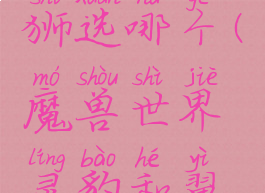 shī xuǎn nǎ gè
狮选哪个(
mó shòu shì jiè
魔兽世界
líng bào hé yì
灵豹和翼